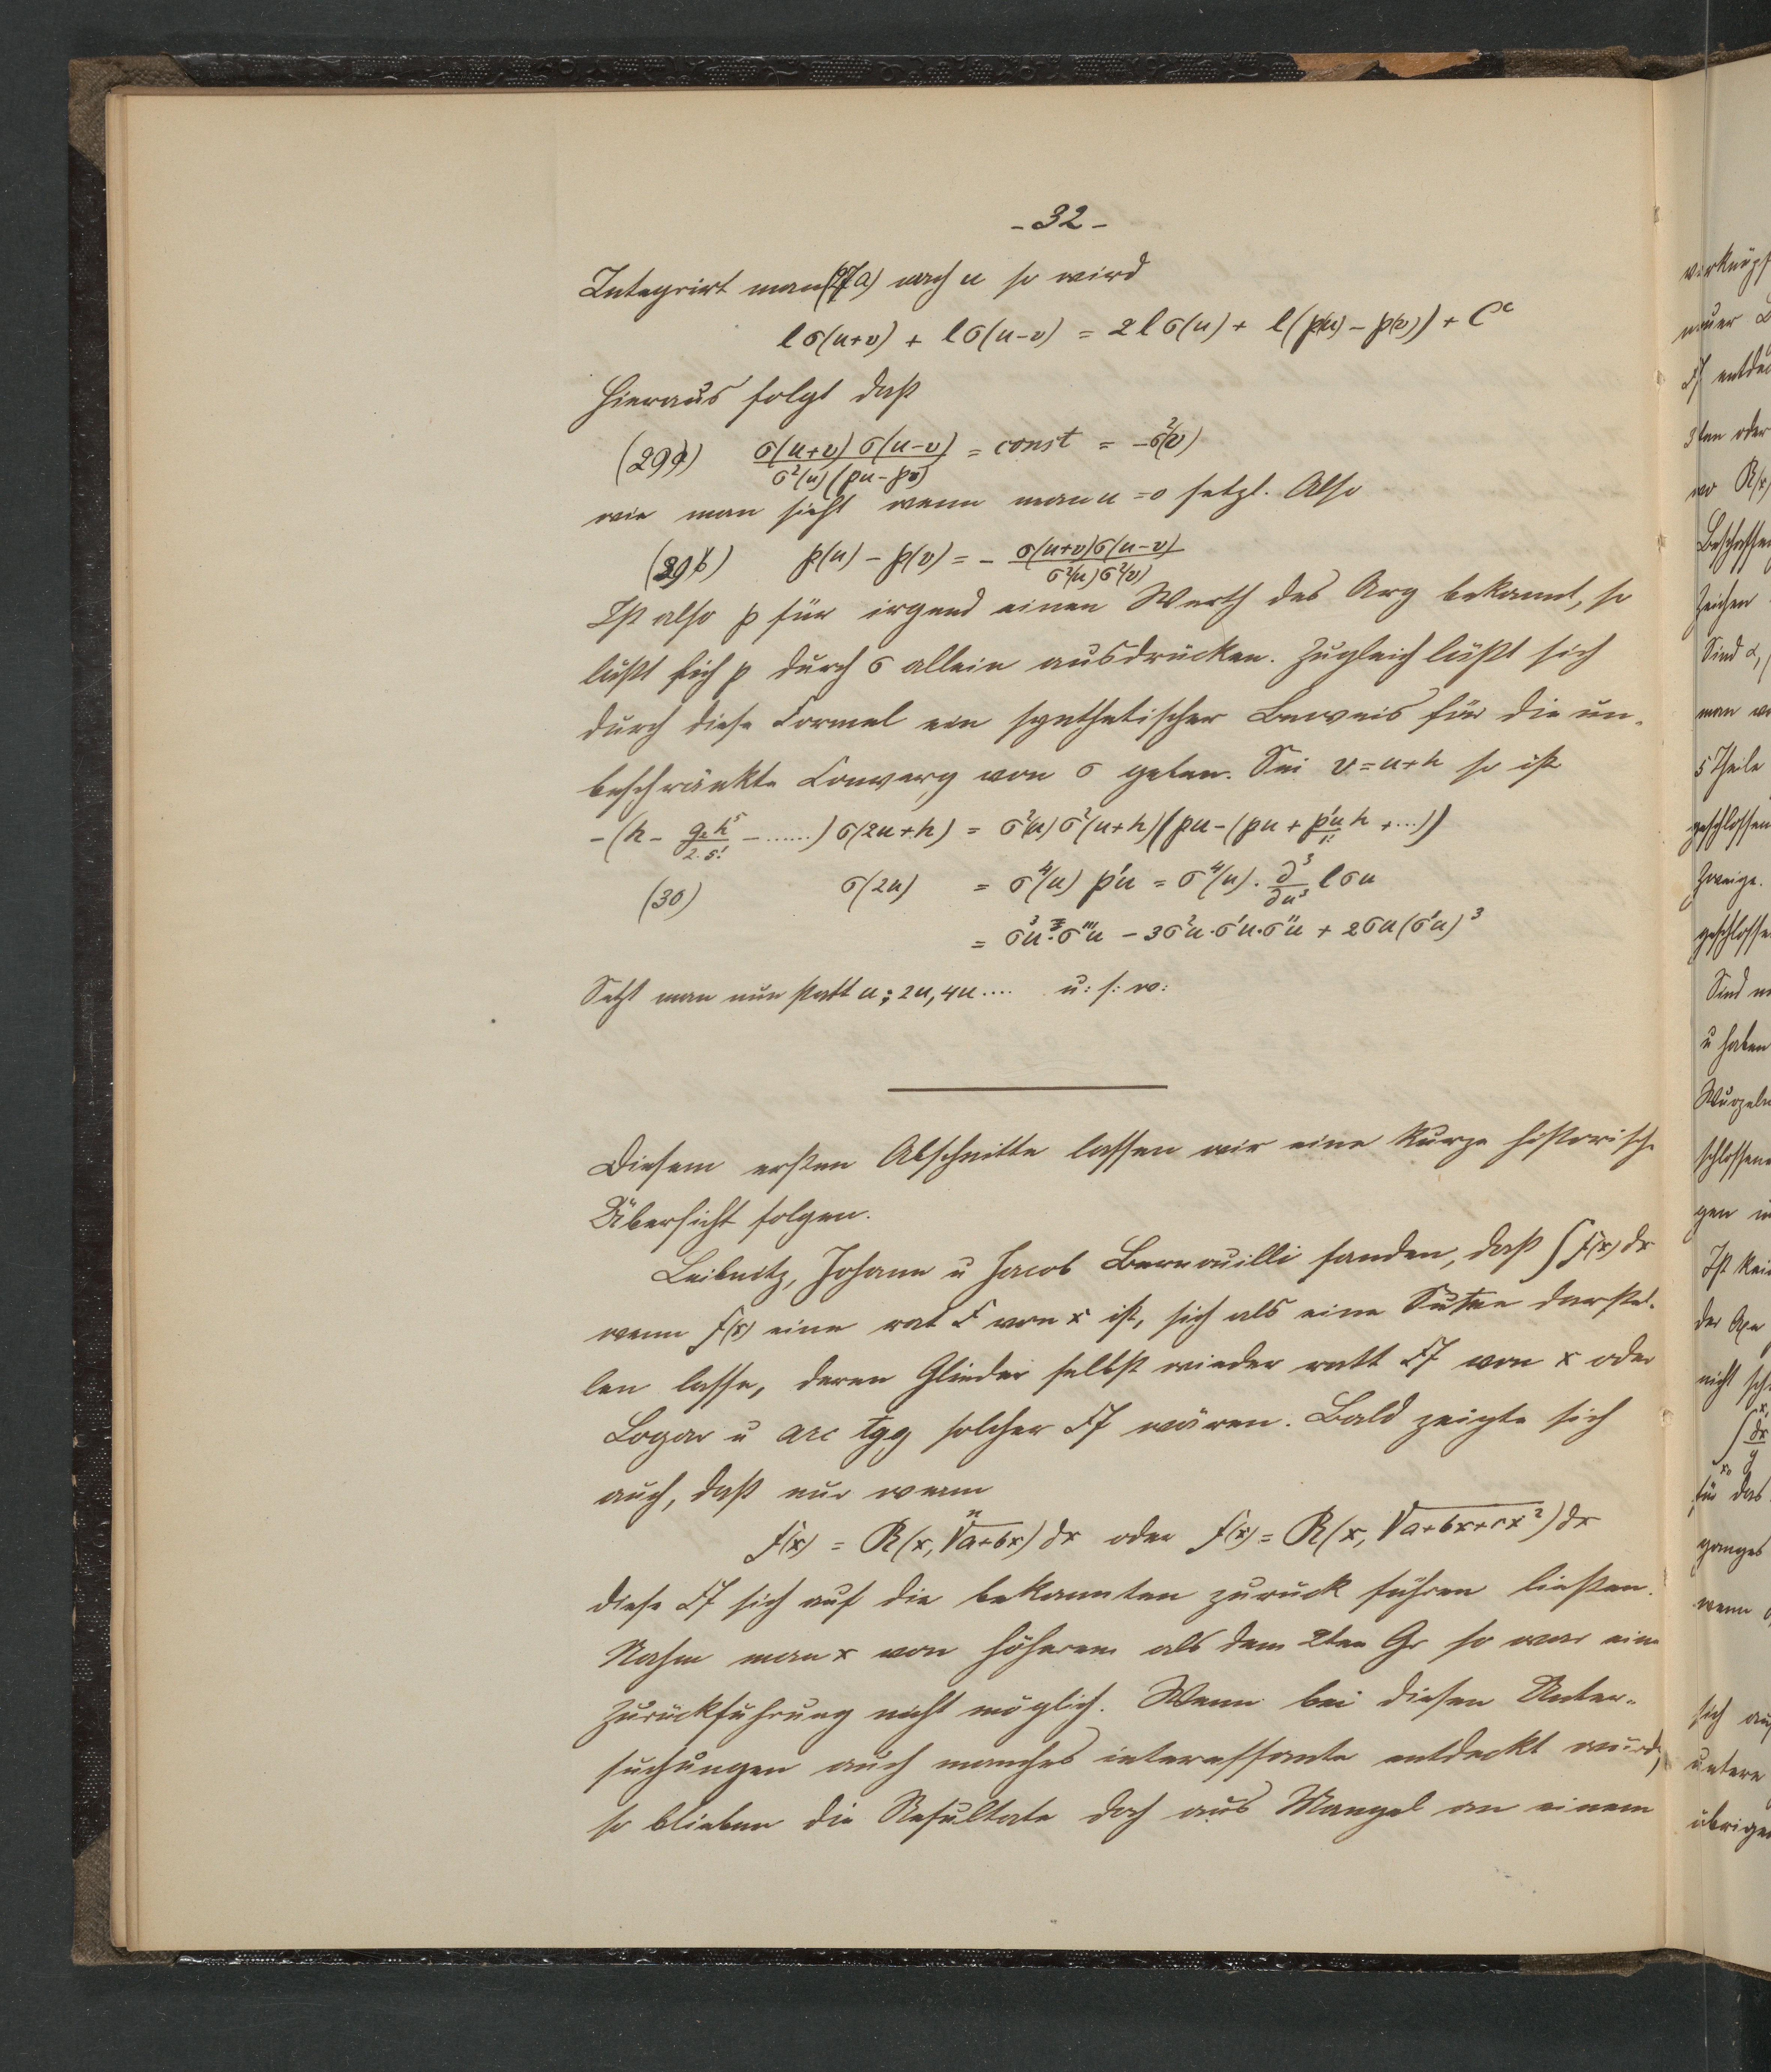 - 32 -
Integrirt man (27a) nach u so wird
lσ(u+v) + lσ(u-v) = 2lσ(u) + l(p(u) - p(v)) + Cᶜ
Hieraus folgt daß
(29a) σ(u+v) σ(u-v) / σ²(u) (pu - pv) = const = -σ²(v)
wie man sieht wenn man u = 0 setzt. Also
(29b) p(u) - p(v) = - σ(u+v)σ(u-v) / σ²(u)σ²(v)
Ist also p für irgend einen Werth des Arg bekannt, so
läßt sich p durch σ allein ausdrücken. Zugleich läßt sich
durch diese Formel ein synthetischer Beweis für die un-
beschränkte Converg von σ geben. Sei v = u+h so ist
-(h - g₂h⁵/2.5! - ......) σ(2u+h) = σ²(u) σ²(u+h) (pu - (pu + p'u/1! h + ...))
(30) σ(2u) = σ⁴(u) p'u = σ⁴(u) . ∂³/∂u³ lσu
= σ³u . σ'''u - 3σ²u . σ'u . σ''u + 2σu (σ'u)³
Setzt man nun statt u; 2u, 4u .... u: s: w:
Diesem ersten Abschnitte lassen wir eine kurze historische
Übersicht folgen.
Leibnitz, Johann u Jacob Bernouilli fanden, daß ∫f(x)dx
wenn f(x) eine rat F von x ist, sich als eine Sume darstel-
len lasse, deren Glieder selbst wieder ratt Ff von x oder
Logar u arc tgg solcher Ff wären. Bald zeigte sich
auch, daß nur wenn
f(x) = R(x, ⁿ√a+bx) dx oder f(x) = R(x, √a+bx+cx²) dx
diese Ff sich auf die bekannten zurück führen ließen.
Nahm man x von höherem als dem 2ten Gr so war eine
Zurückführung nicht möglich. Wenn bei diesen Unter-
suchungen auch manches interessante entdeckt wurde,
so blieben die Resultate doch aus Mangel an einem